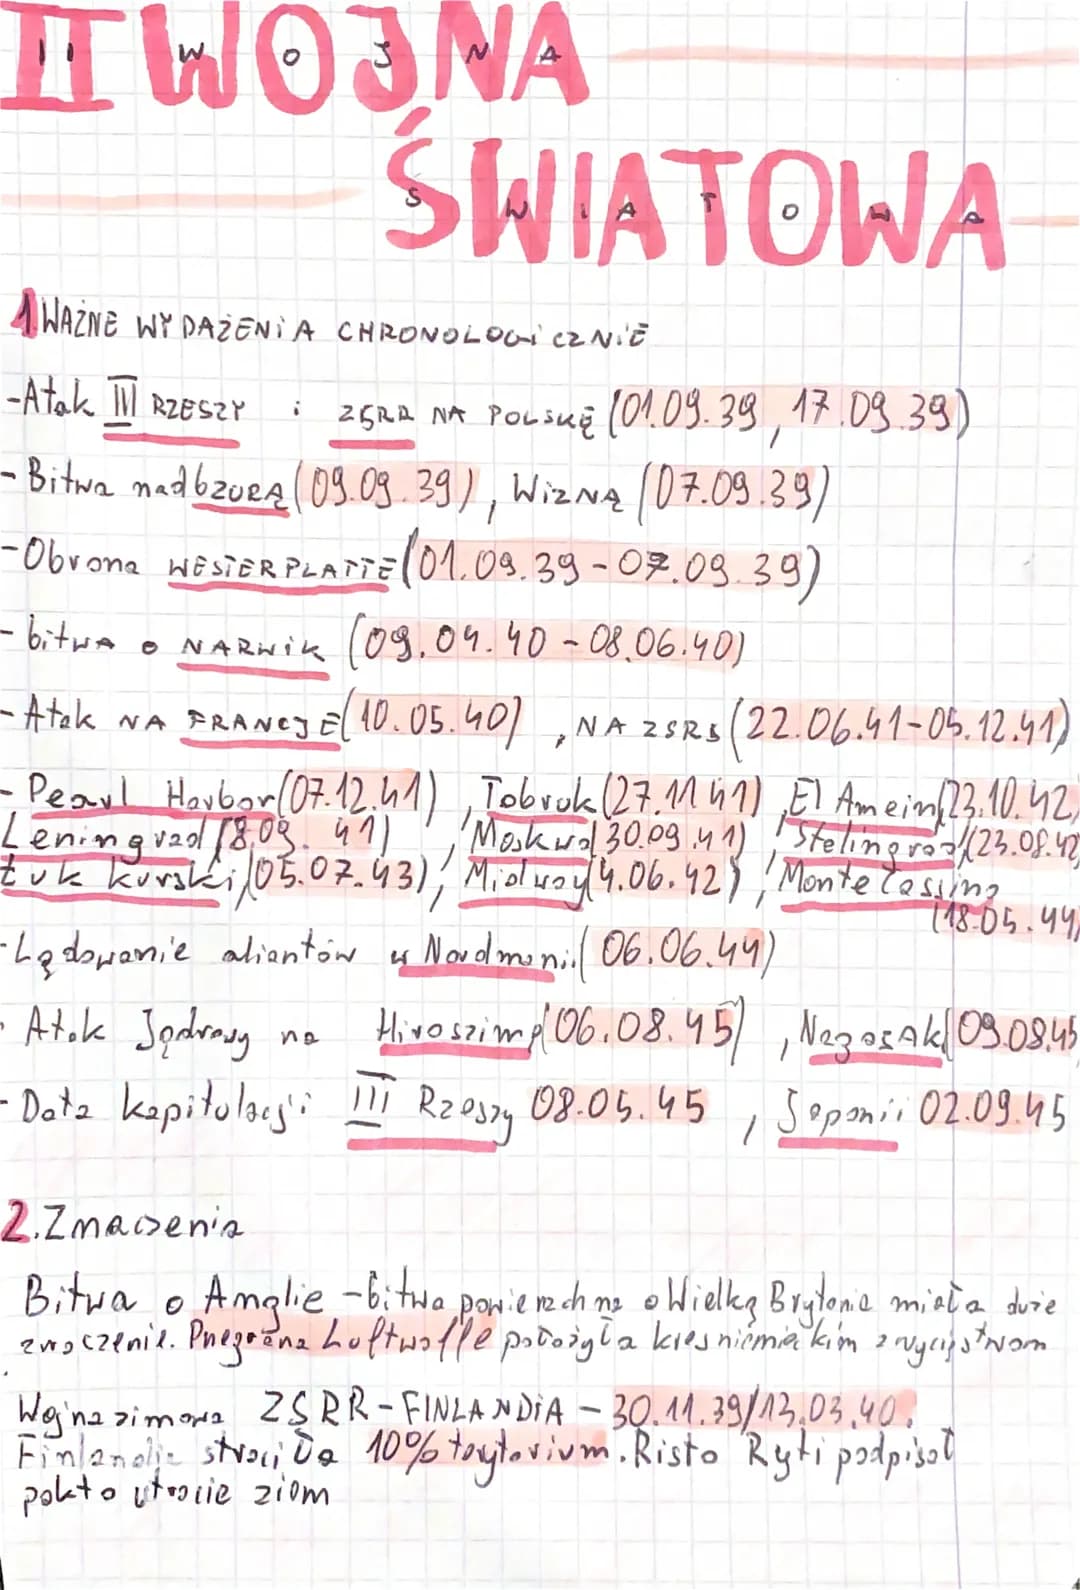 II WOJNA
ŚWIATOWA
1 WAŻNE WYDAŻENIA CHRONOLOGICZNIE
-Atak III RZESZY i ZSRR NA POLSKĘ (01.09.39, 17.09.39)
-Bitwa nad bZURĄ (09.09.39), WIZNĄ (07.09.39)
-Obrona WESTERPLATTE (01.09.39-07.09.39)
-bitwa o NARWIK (09.04.40-08.06.40)
-Atak NA FRANCJE (10.05.40), NA ZSRS (22.06.41-05.12.41)
-Pearl Harbor (07.12.41), Tobruk (27.11.41), El Amein (23.10.42)
Leningrad (8.09.41), Moskwa (30.09.41), Stelingrad (23.08.42)
Łuk kurski (05.07.43), Midway (4.06.42), Monte Cassino
(18.05.44)
-Lądowanie aliantów w Nordmanii (06.06.44)
-Atak Jądrowy na Hiroszimę (06.08.45), Nagasaki (09.08.45
-Data kapitulacji III Rzeszy 08.05.45, Japonii 02.09.45
2. Znaczenia
Bitwa o Anglie -bitwa powierzchna o Wielką Brytanie miała duże
znaczenie. Pnegrana Luftwaffe położyła kres niemieckim zwycięstwom
Wojna zimowa ZSRR-FINLANDIA - 30.11.39/13.03.40.
Finlandia straciła 10% terytorium. Risto Ryti podpisał
pakt o utracie ziem